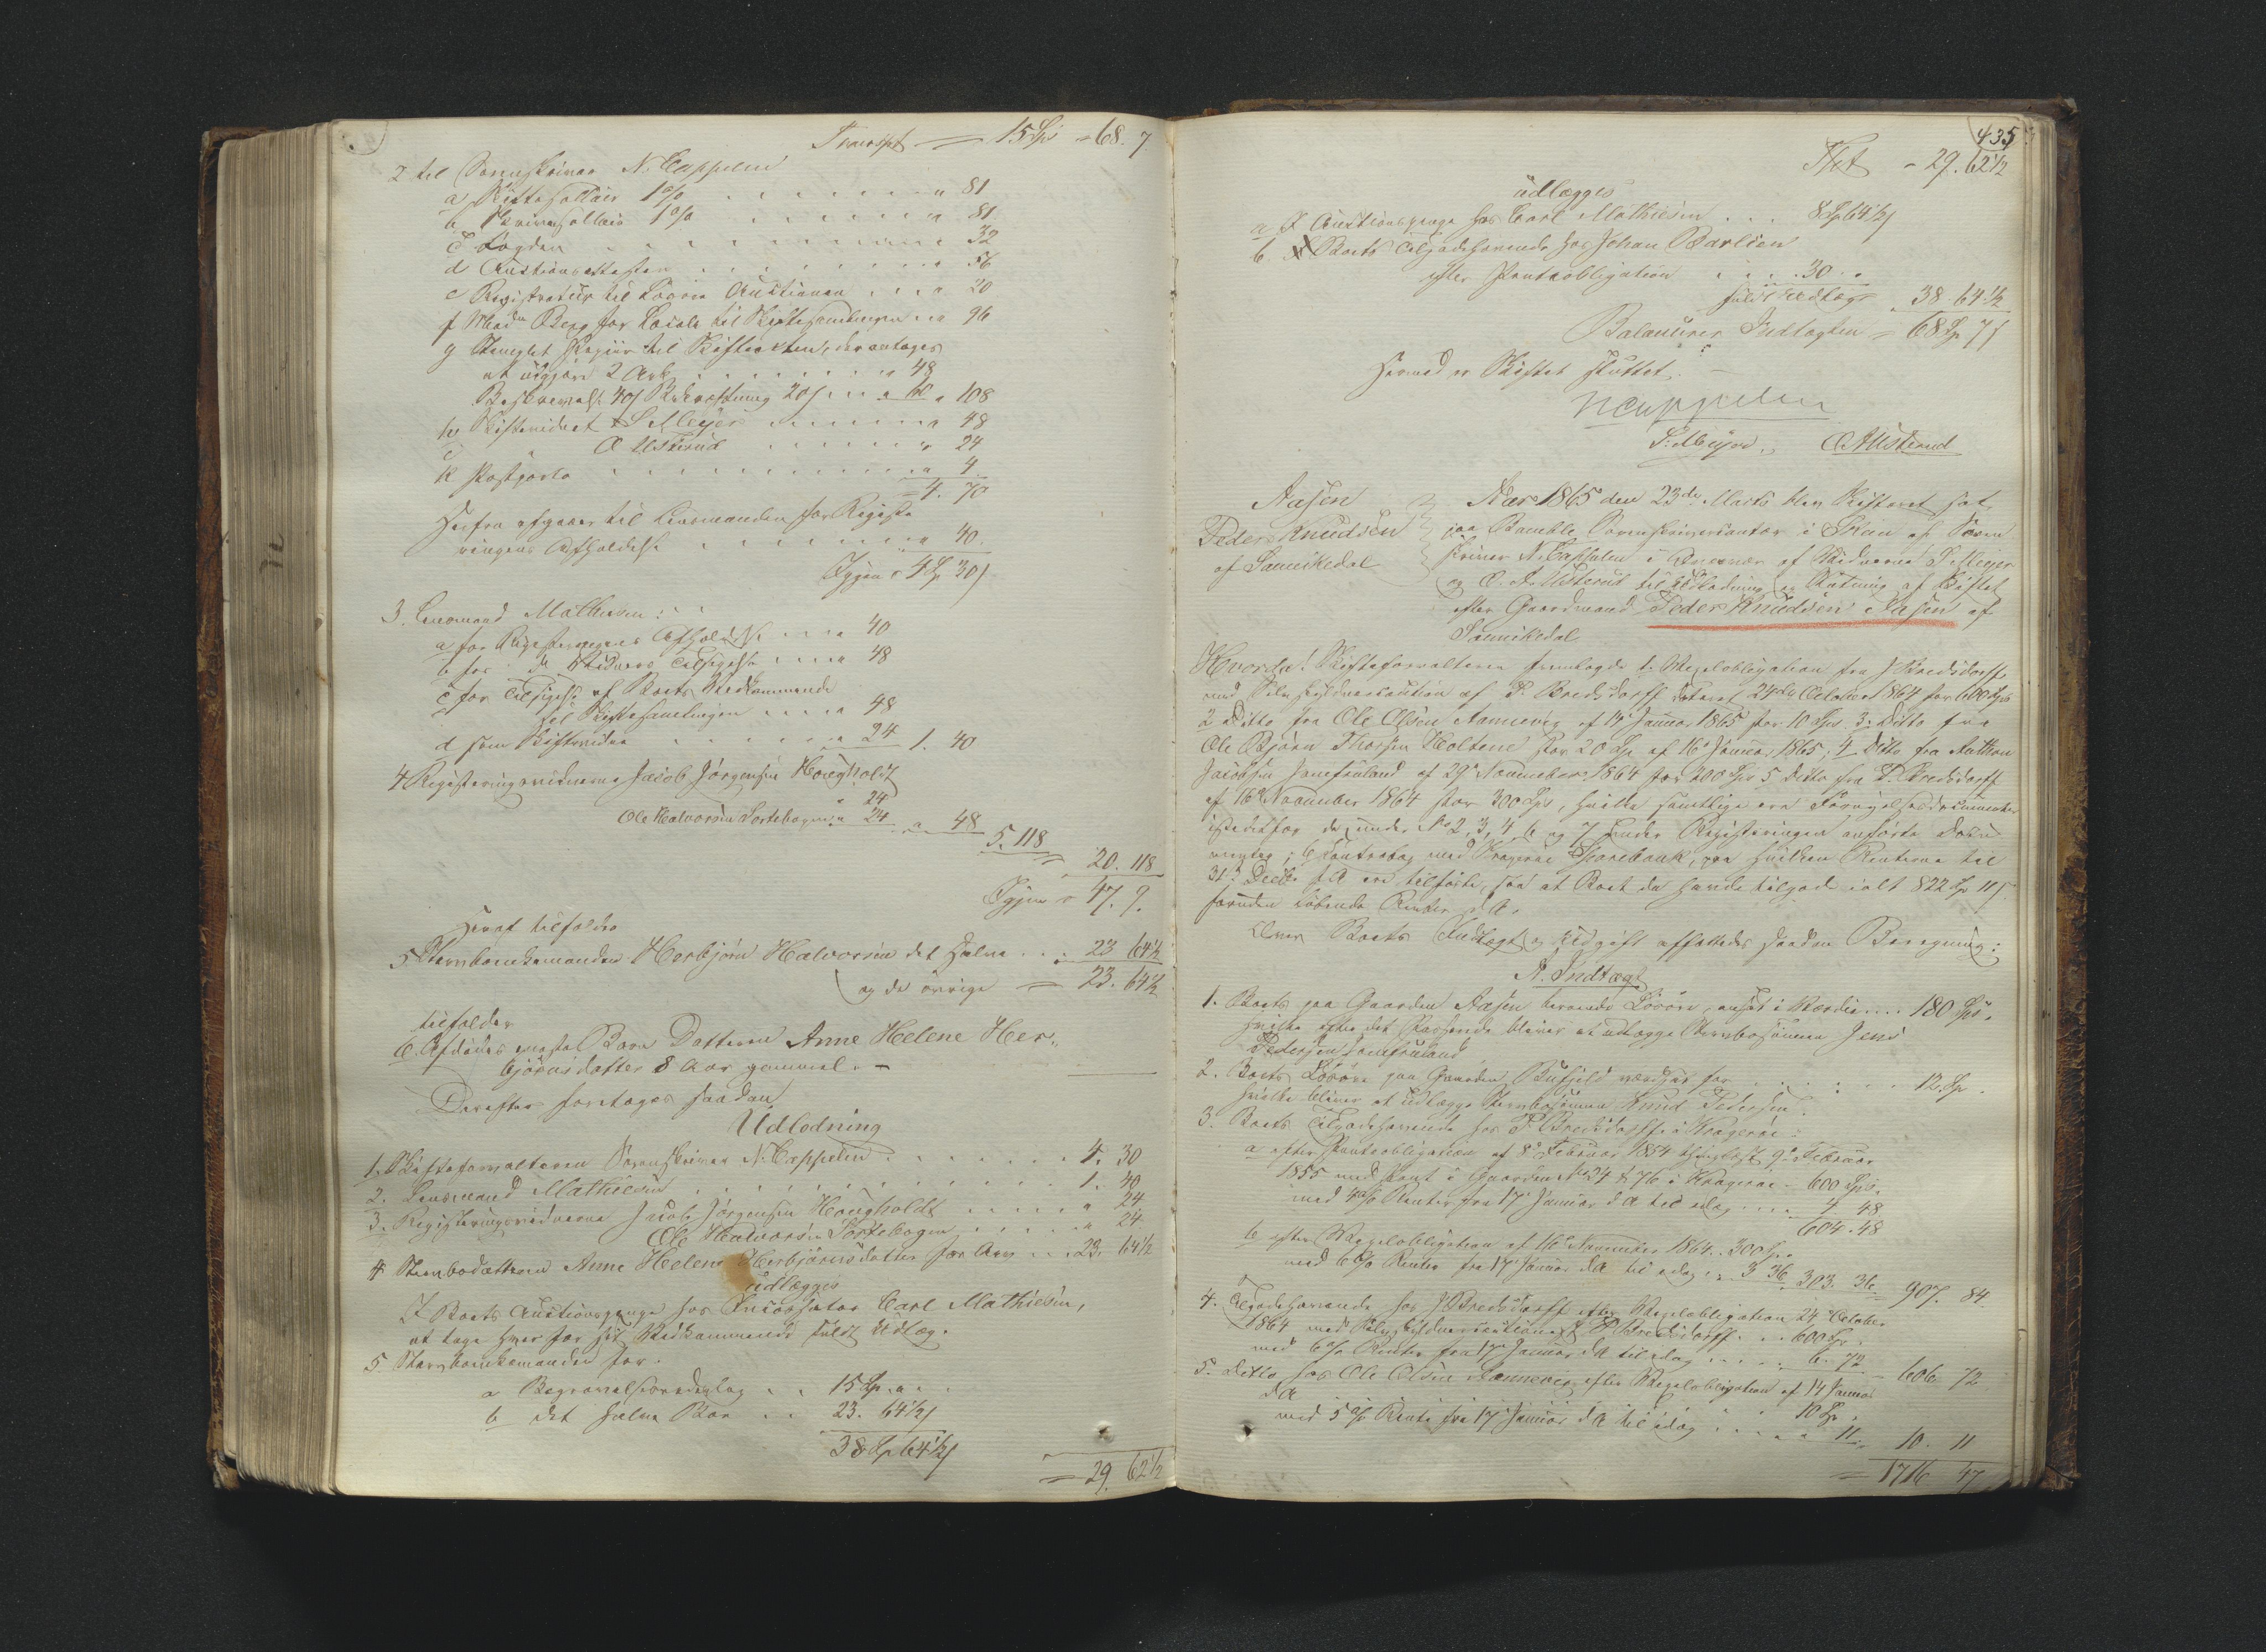 Transpt = 15 Sp = 68. 7
2 til Sorenskriver N. Cappelen
a, Skiftesallair 1 % . . . . . " 81
b, Skriversallair 1 % . . . . . " 81
c Lagden . . . . . " 32
d Auctionsattesten . . . . . " 56
e Registratur til Løsøre Auctionen . . . " 20
f Mad. Berg for Locale til Skiftesamlingen . . " 96
g Stemplet Papiir til Skifteakten, der antages
at udgjøre 2 Ark . . . . . " 48
Beskrivelse 40 s Bekræftning 20 s . . " 60 " 108
h Skiftevidnet S. Meyer . . . . . " 48
i O Ulsterud . . . . . " 24
k Postporto . . . . . " 4
= 4. 70
Herfra afgaaer til Lensmanden for Registe
ringens Afholdelse . . . . . " 40
Igjen = 4 Sp 30 s
3. Lensmand Mathiesen:
a for Registeringens Afholdelse . . . " 40
b for de Vidners Tilsigelse . . . " 48
c for Tilsigelse af Boets Vedkommende
til Skiftesamlingen . . . " 48
d som Skiftevidne . . . . . " 24 1. 40
4 Registeringsvidnerne Jacob Jørgensen Hougholdt
" 24
Ole Halvorsen Sortebogen " 24 " 48
5. 118
= 20. 118
Igjen = 47. 9.
Heraf tilfalder
5 Stervboenkemanden Herbjørn Halvorsen det Halve . . . 23 64½
og de øvrige = 23. 64½
tilfalder
6. Afdødes eneste Barn Datteren Anne Helene Her-
bjørnsdatter 8 Aar gammel. -
Derefter foretoges saadan
Udlodning
1. Skifteforvalteren Sorenskriver N. Cappelen . . . . . 4. 30
2. Lensmand Mathiesen . . . . . 1. 40
3. Registeringsvidnerne Jacob Jørgensen Hougholdt . . . . . " 24
Ole Halvorsen Sortebogen . . . . . " 24
4 Stervbodatteren Anne Helene Herbjørnsdatter for Arv . . . 23. 64½
udlægges
I Boets Auctionspenge hos Incassator Carl Mathiesen,
at tage hver for sit Vedkommende fuldt Udlæg.
5 Stervboenkemanden for
a Begravelsesudlæg . . 15 Sp " "
b det halve Boe . . 23. 64½ s
38 Sp 64½ s
= 29. 62½
435
Tr̄t = 29. 62½
udlægges
a I Auctionspenge hos Carl Mathiesen . . . 8 Sp 64½ s
b Boets Tilgodehavende hos Johan Barlien
efter Panteobligation . . . . 30 . "
fuldt Udlæg 38. 64½
Balancerer Indtægten = 68 Sp 7 s
Hermed er Skiftet sluttet. -
NCappelen
S. Meyer. O A Ulsterud
Aasen
Peder Knudsen
af Sannikedal
Aar 1865 den 23de Marts blev Skifteret sat
paa Bamble Sorenskrivercontor i Skeen af Soren
skriver N. Cappelen i Overvær af Vidnerne S. Meyer
og O. A. Ulsterud til Udlodning og Slutning af Skiftet
efter Gaardmand Peder Knudsen Aasen af
Sannikedal
Hvorda! Skifteforvalteren fremlagde 1. Vexelobligation fra J Bredsdorff
med Selvskyldnercaution af P. Bredsdorff dateret 24de October 1864 for 600 Sp
2 Ditto fra Ole Olsen Aannevig af 14 Januar 1865 for 10 Sp 3. Ditto fra
Ole Bjørn Thorsen Holtene for 20 Sp af 16 Januar 1865, 4 Ditto fra Anthon
Jacobsen Jomfruland af 29 November 1864 for 200 Sp 5 Ditto fra P. Bredsdorff
af 16 November 1864 for 300 Sp, hvilke samtlige ere Fornyelsesdocumenter
istedetfor de under No 2, 3, 4, 6 og 7 under Registeringen anførte Docu
menter; 6 Contrabog med Kragerøe Sparebank, paa hvilken Renterne til
31 Decbr f. A ere tilførte, saa at Boet da havde tilgode ialt 822 Sp 11 s
foruden løbende Renter d. A.
Over Boets Indtægt og Udgift affattedes saadan Beregning:
A. Indtægt
1. Boets paa Gaarden Aasen værende Løsøre, ansat i Værdie . . . 180 Sp.
hvilke efter det Passerede bliver at udlægge Stervbosønnen Jens
Pedersen Jomfruland
2. Boets Løsøre paa Gaarden Bufjeld værdsat for . . . . . 12 Sp.
hvilke bliver at udlægge Stervbosønnen Knud Pedersen.
3. Boets Tilgodehavende hos P. Bredsdorff i Kragerøe:
a efter Panteobligation af 8 Februar 1854 thinglæst 9 Februar
1855 med Pant i Gaarden No 24 & 76 i Kragerøe - 600 Sp.
med 4 % Renter fra 17 Januar d. A til idag . . . . 4 48
604. 48
b efter Vexelobligation af 16 November 1864 . . 300 Sp.
med 6 % Renter fra 17 Januar d. A til idag . . 3 36 303. 36 907. 84
4. Tilgodehavende hos J. Bredsdorff efter Vexelobligation 24 October
1864 med Selvskyldnercaution af P. Bredsdorff . . . 600 Sp.
med 6 % Renter fra 17 Januar d. A til idag . . . . 6. 72 606 72
5. Ditto hos Ole Olsen Aannevig efter Vexelobligation af 14 Januar
d. A . . . . . 10 Sp.
med 5 % Rente fra 17 Januar d. A til idag . . . . " 11 10. 11
= 1716 47